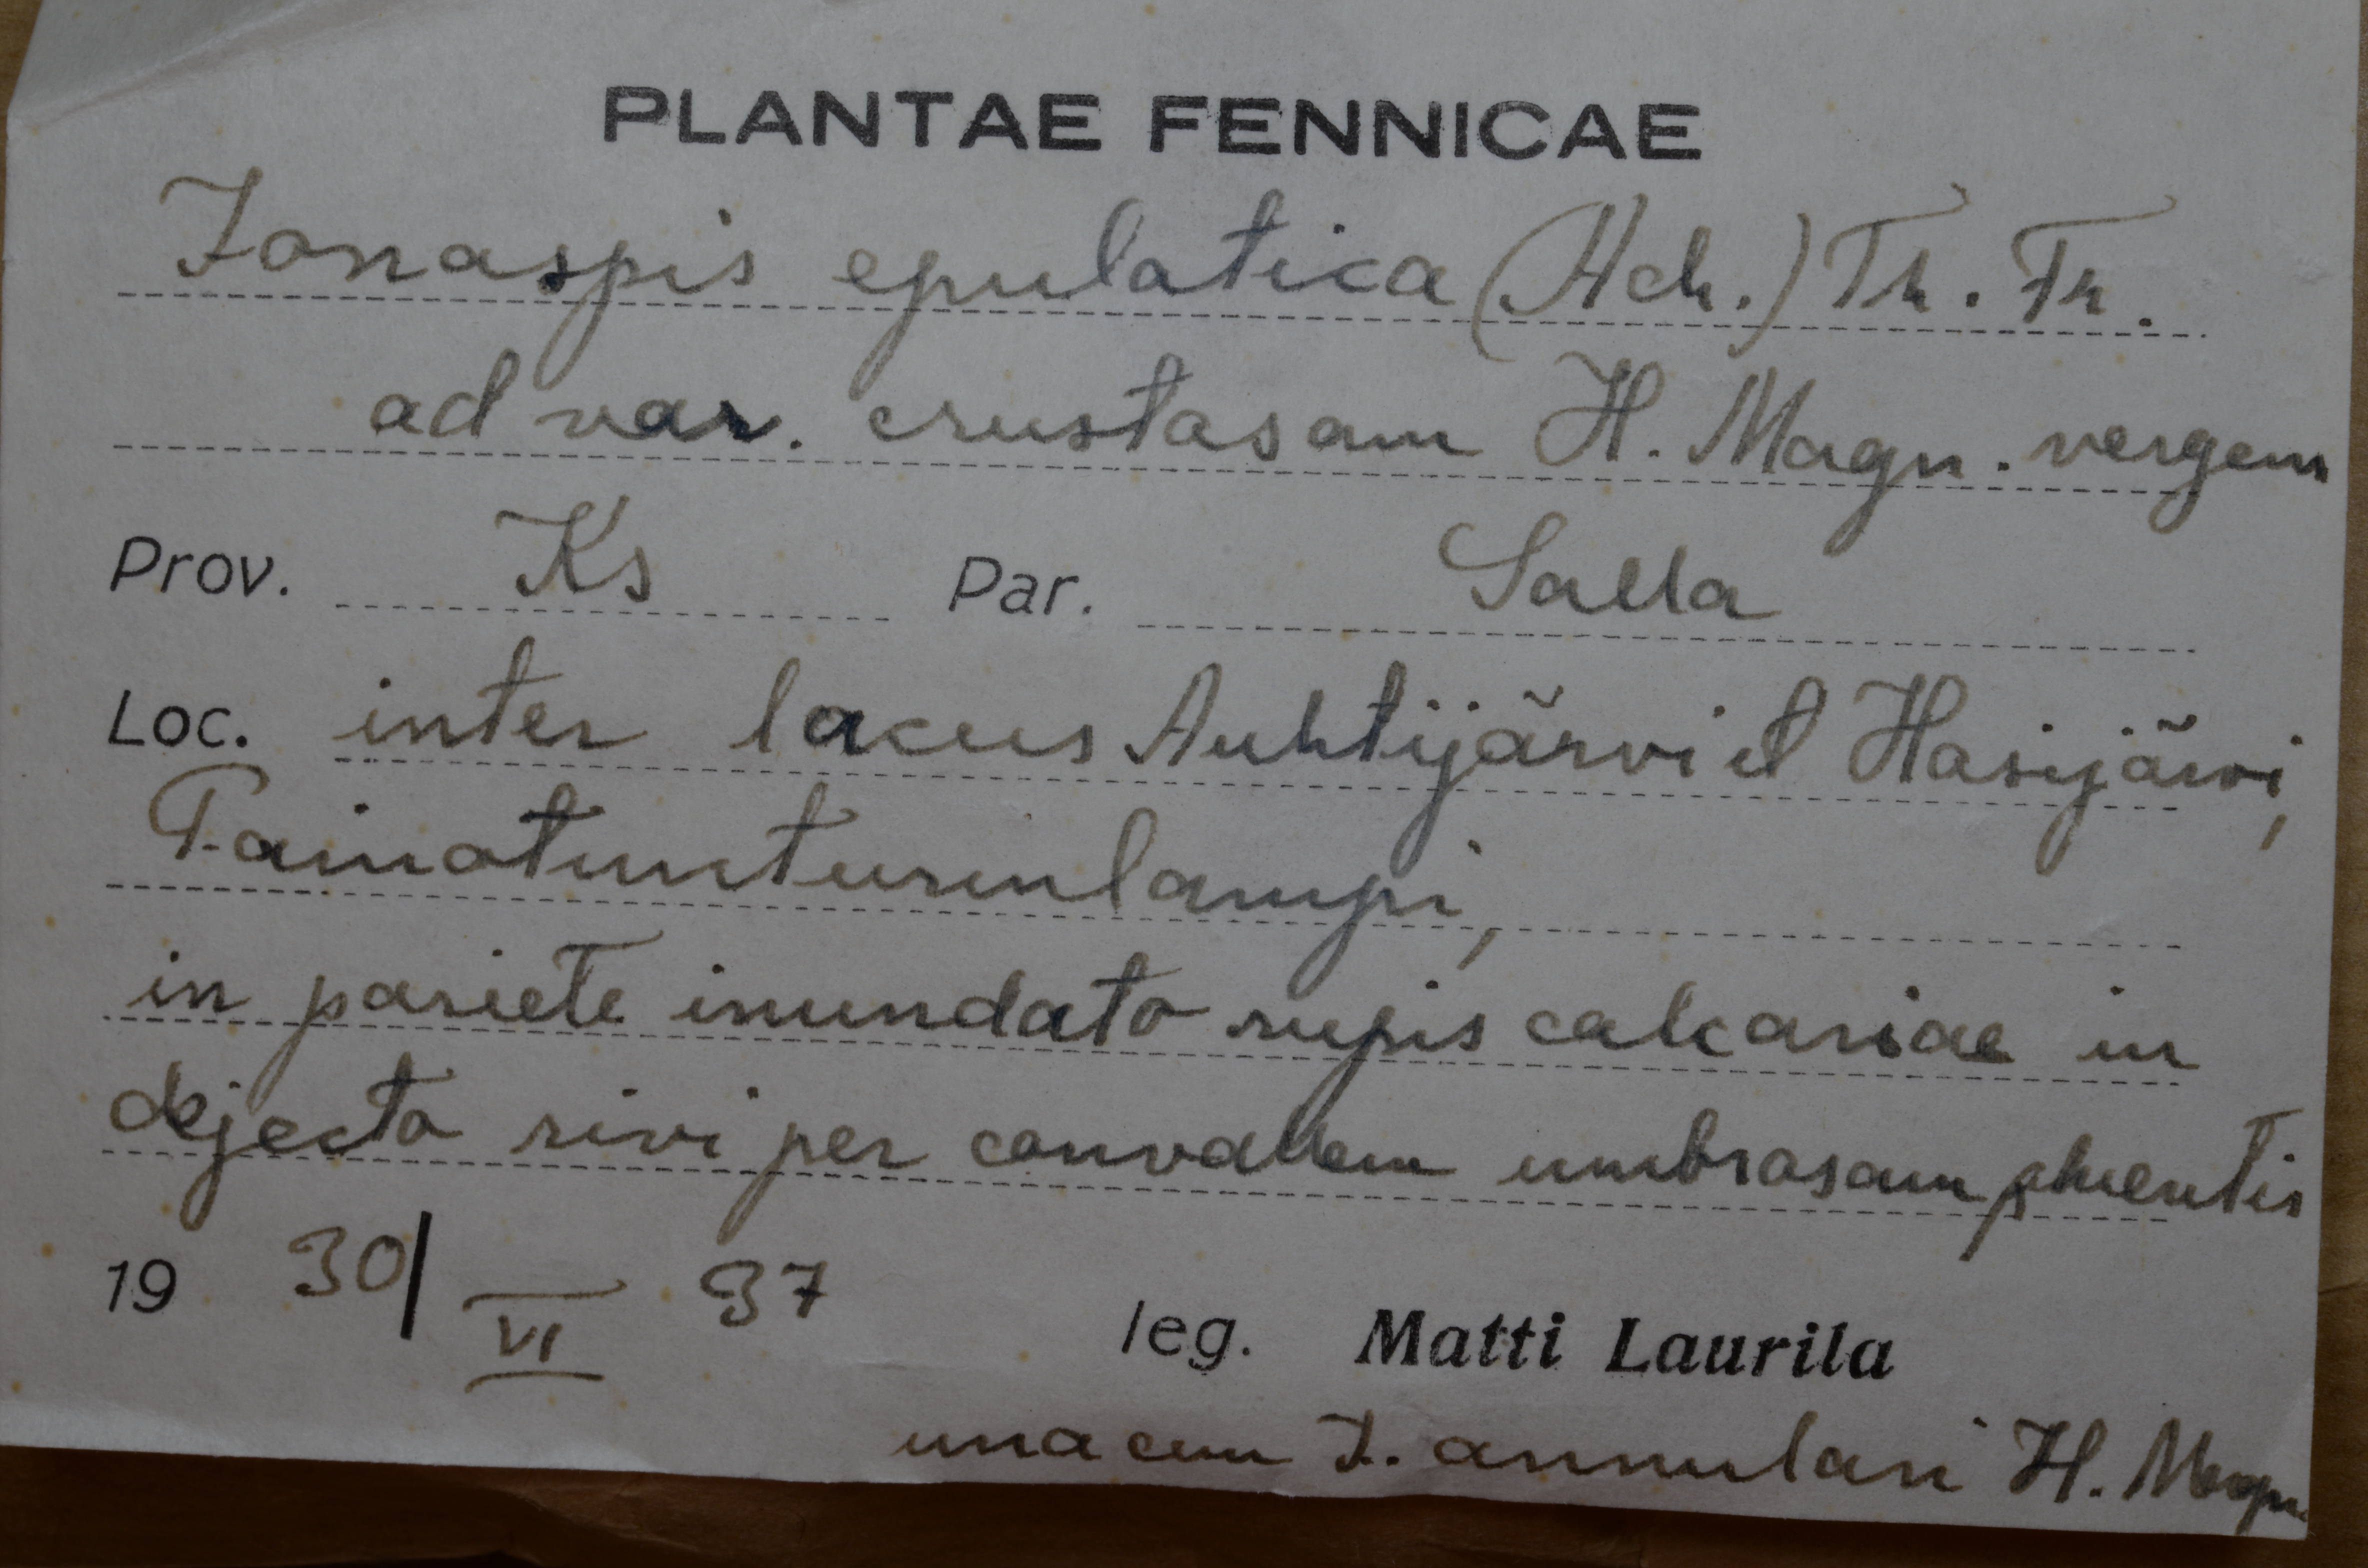 PLANTAE FENNICAE
Ionaspis epulotica (Ach.) Th. Fr.
ad var. crustosam H. Magn. vergens
Prov. Ks Par. Salla
Loc. inter lacus Auhtijärvi et Hasijärvi,
Painotunturinlampi,
in pariete inundato rupis calcariae in
dejecto rivi per convallem umbrosam
19 30/VI 37 leg. Matti Laurila
una cum I. annulari H. Magn.